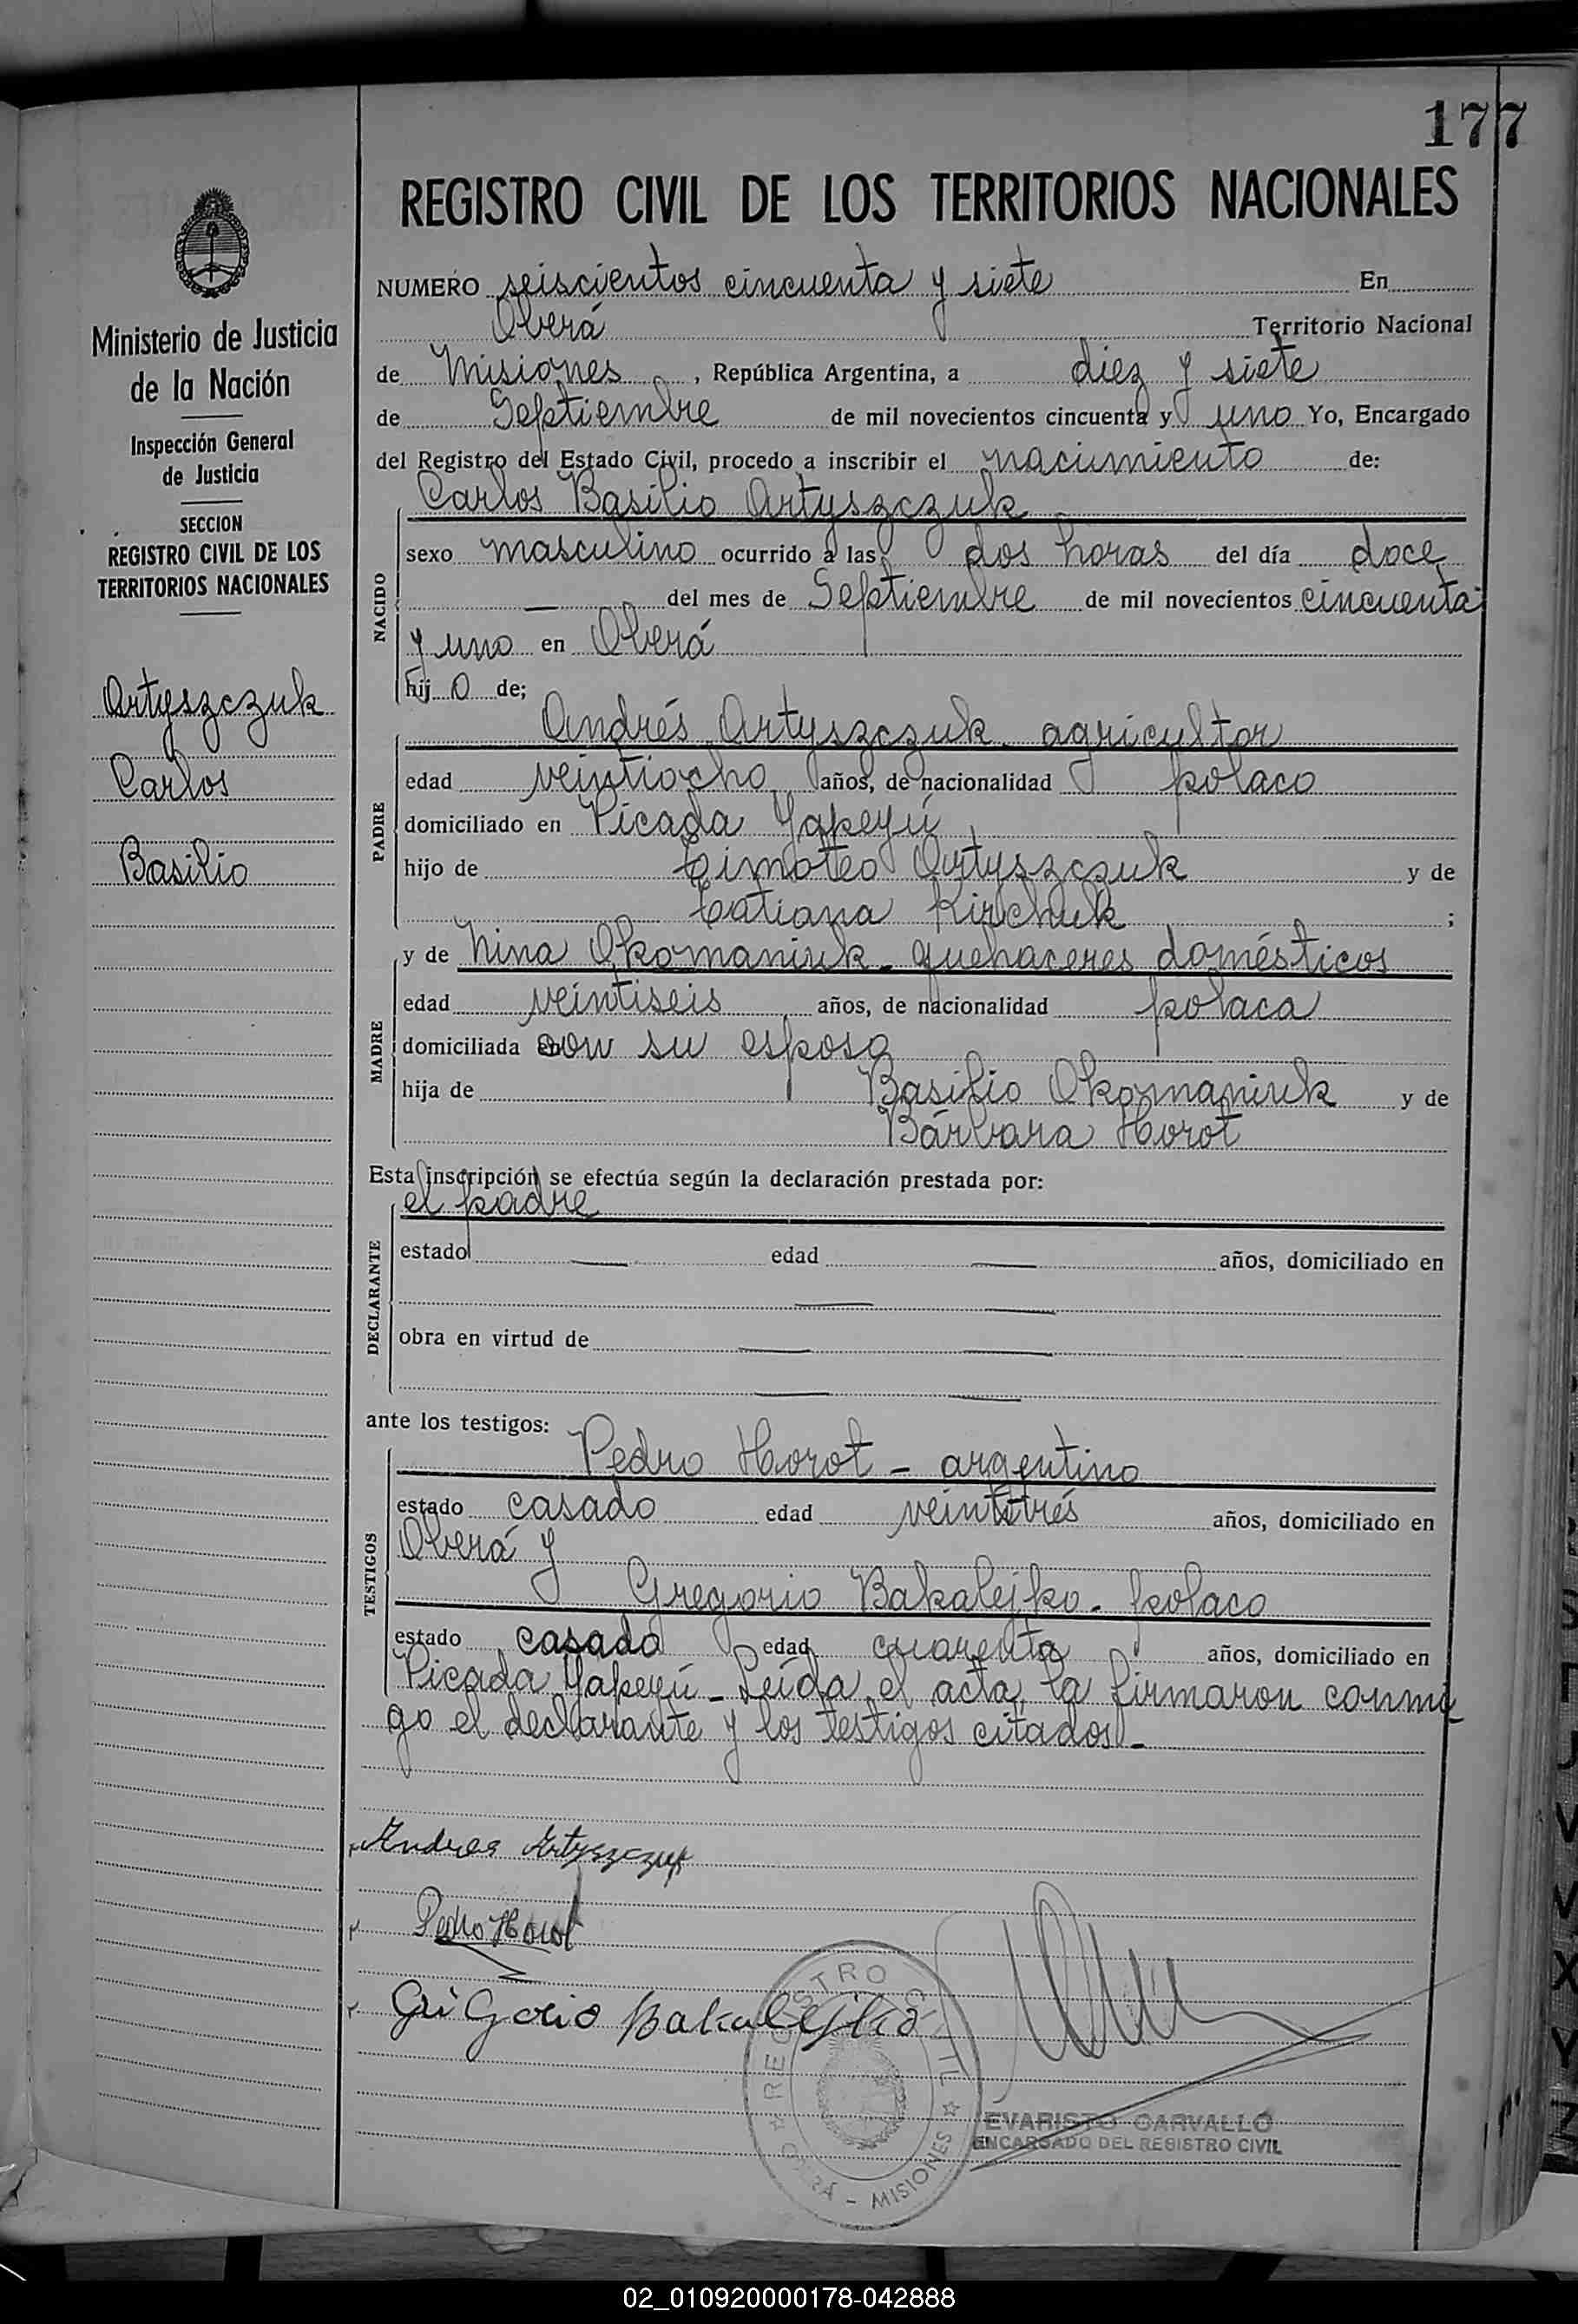 177
REGISTRO CIVIL DE LOS TERRITORIOS NACIONALES
Ministerio de Justicia
de la Nación
Inspección General
de Justicia
SECCION
REGISTRO CIVIL DE LOS
TERRITORIOS NACIONALES
Artyszczuk
Carlos
Basilio
NUMERO seiscientos cincuenta y siete En
Oberá Territorio Nacional
de Misiones, República Argentina, a diez y siete
de Septiembre de mil novecientos cincuenta y uno Yo, Encargado
del Registro del Estado Civil, procedo a inscribir el nacimiento de:
Carlos Basilio Artyszczuk
NACIDO
sexo masculino ocurrido a las dos horas del día doce
— del mes de Septiembre de mil novecientos cincuenta
y uno en Oberá
hijo de;
Andrés Artyszczuk - agricultor
PADRE
edad veintiocho años, de nacionalidad polaco
domiciliado en Picada Yapeyú
hijo de Timoteo Artyszczuk y de
Tatiana Kirchuk ;
y de Nina Okomaniuk - quehaceres domésticos
MADRE
edad veintiseis años, de nacionalidad polaca
domiciliada con su esposo
hija de Basilio Okomaniuk y de
Bárbara Horot
Esta inscripción se efectúa según la declaración prestada por:
el padre
DECLARANTE
estado — edad — años, domiciliado en
— —
obra en virtud de — —
— —
ante los testigos:
Pedro Horot - argentino
TESTIGOS
estado casado edad veintitrés años, domiciliado en
Oberá y
Gregorio Bakalejko - polaco
estado casado edad cuarenta años, domiciliado en
Picada Yapeyú - Leída el acta, la firmaron conmi-
go el declarante y los testigos citados.-
Andres Artyszczuk
Pedro Horot
Grigorio Bakalejko
REGISTRO CIVIL
OBERÁ - MISIONES
EVARISTO CARVALLO
ENCARGADO DEL REGISTRO CIVIL
02_010920000178-042888